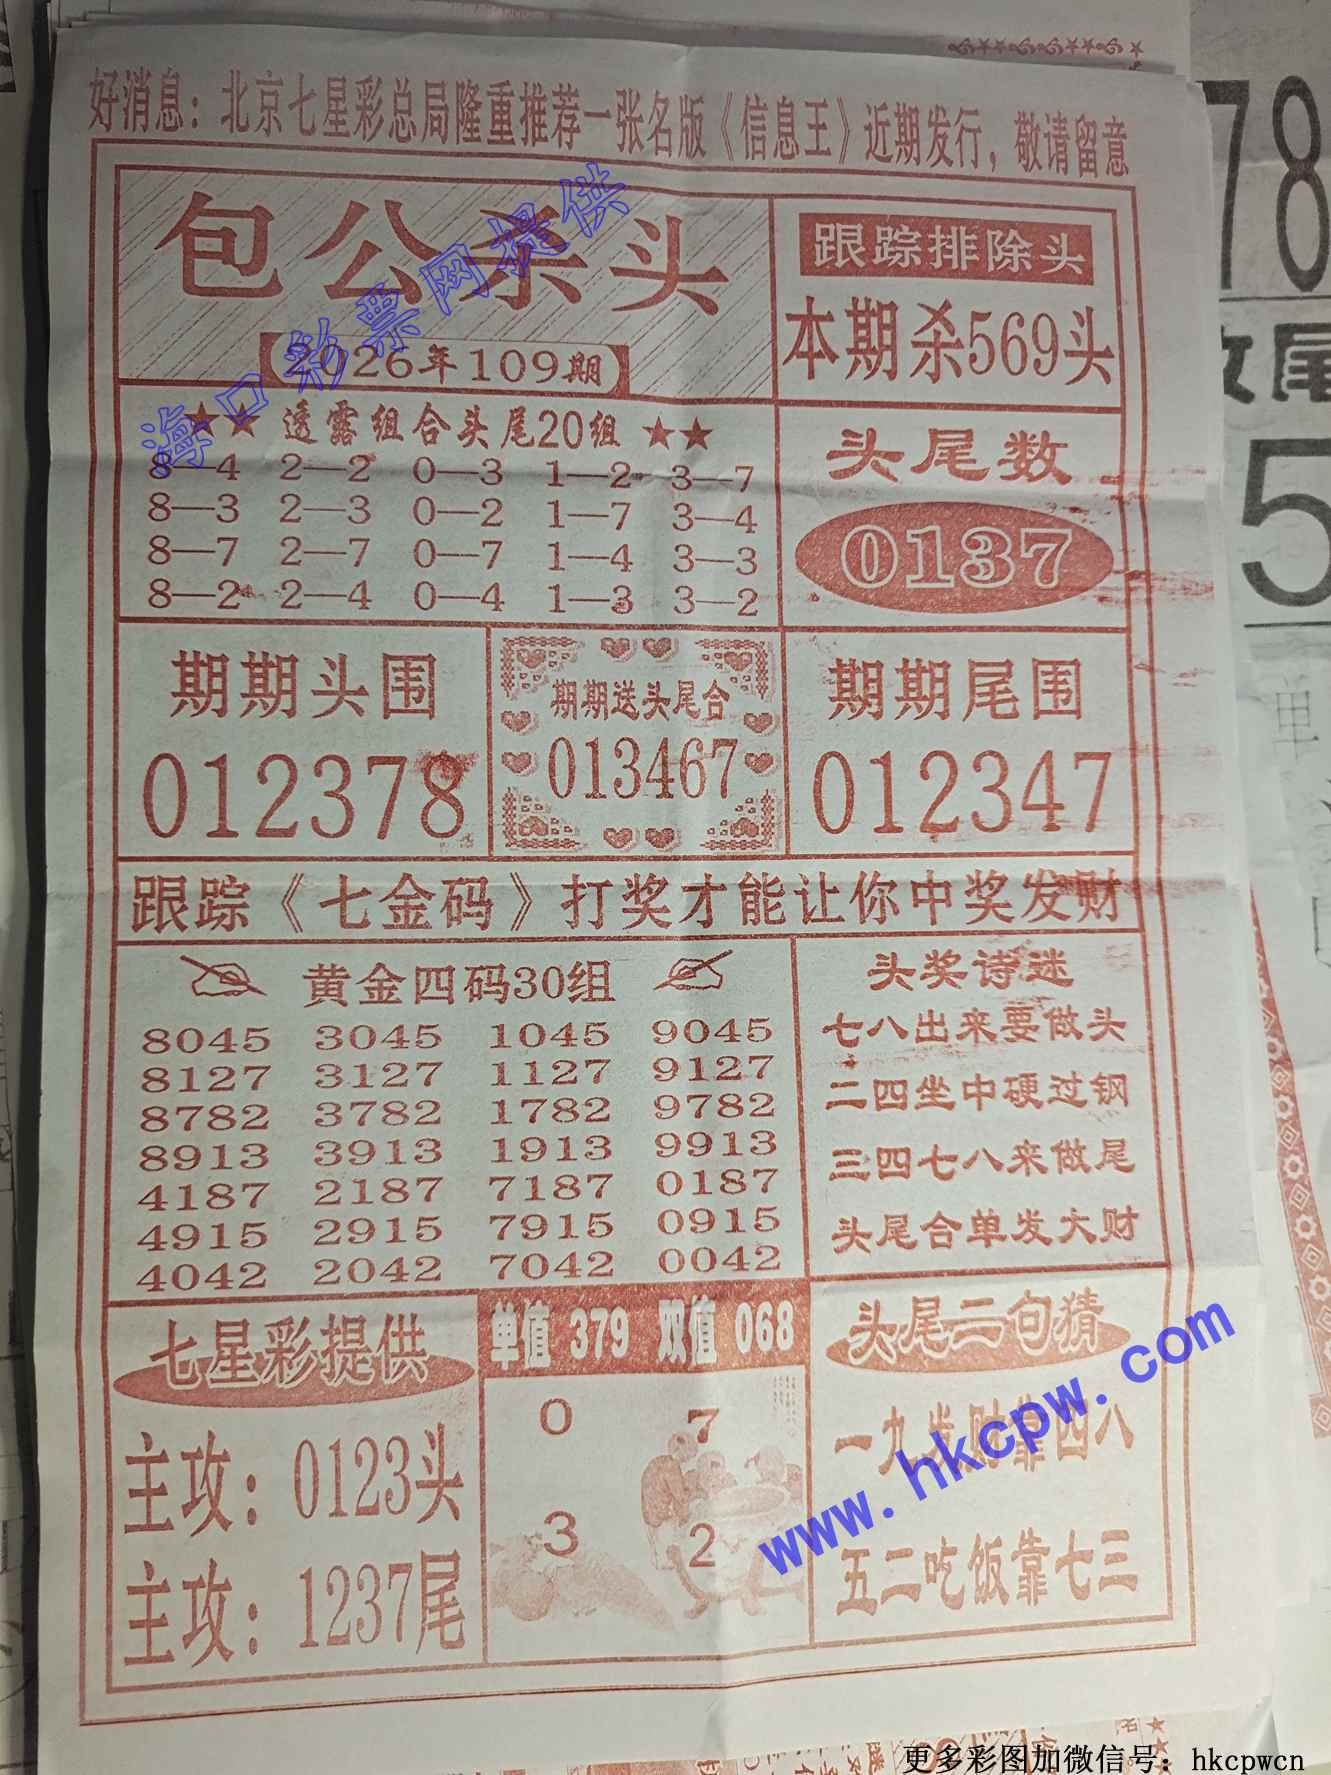 好消息：北京七星彩总局隆重推荐一张名版《信息王》近期发行，敬请留意
包公杀头
【2026年109期】
跟踪排除头
本期杀569头
★★ 透露组合头尾20组 ★★
8—4 2—2 0—3 1—2 3—7
8—3 2—3 0—2 1—7 3—4
8—7 2—7 0—7 1—4 3—3
8—2 2—4 0—4 1—3 3—2
头尾数
0137
期期头围
012378
期期送头尾合
013467
期期尾围
012347
跟踪《七金码》打奖才能让你中奖发财
黄金四码30组
8045 3045 1045 9045
8127 3127 1127 9127
8782 3782 1782 9782
8913 3913 1913 9913
4187 2187 7187 0187
4915 2915 7915 0915
4042 2042 7042 0042
头奖诗迷
七八出来要做头
二四坐中硬过钢
三四七八来做尾
头尾合单发大财
七星彩提供
主攻：0123头
主攻：1237尾
单值 379 双值 068
0 7
3 2
头尾二句猜
一九发财靠四八
五二吃饭靠七三
海口彩票网提供
www.hkcpw.com
78
尾
5
单
更多彩图加微信号：hkcpwcn